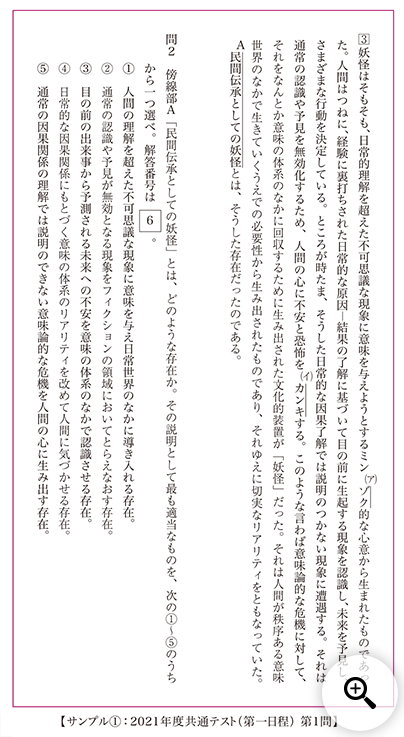 3 妖怪はそもそも、日常的理解を超えた不可思議な現象に意味を与えようとするミン(ア)ゾク的な心意から生まれたものであっ
た。人間はつねに、経験に裏打ちされた日常的な原因―結果の了解に基づいて目の前に生起する現象を認識し、未来を予見し、
さまざまな行動を決定している。ところが時たま、そうした日常的な因果了解では説明のつかない現象に遭遇する。それは
通常の認識や予見を無効化するため、人間の心に不安と恐怖を(イ)カンキする。このような言わば意味論的な危機に対して、
それをなんとか意味の体系のなかに回収するために生み出された文化的装置が「妖怪」だった。それは人間が秩序ある意味
世界のなかで生きていくうえでの必要性から生み出されたものであり、それゆえに切実なリアリティをともなっていた。
A民間伝承としての妖怪とは、そうした存在だったのである。
問2 傍線部A「民間伝承としての妖怪」とは、どのような存在か。その説明として最も適当なものを、次の①〜⑤のうち
から一つ選べ。解答番号は 6 。
① 人間の理解を超えた不可思議な現象に意味を与え日常世界のなかに導き入れる存在。
② 通常の認識や予見が無効となる現象をフィクションの領域においてとらえなおす存在。
③ 目の前の出来事から予測される未来への不安を意味の体系のなかで認識させる存在。
④ 日常的な因果関係にもとづく意味の体系のリアリティを改めて人間に気づかせる存在。
⑤ 通常の因果関係の理解では説明のできない意味論的な危機を人間の心に生み出す存在。
【サンプル①：2021年度共通テスト（第一日程） 第1問】